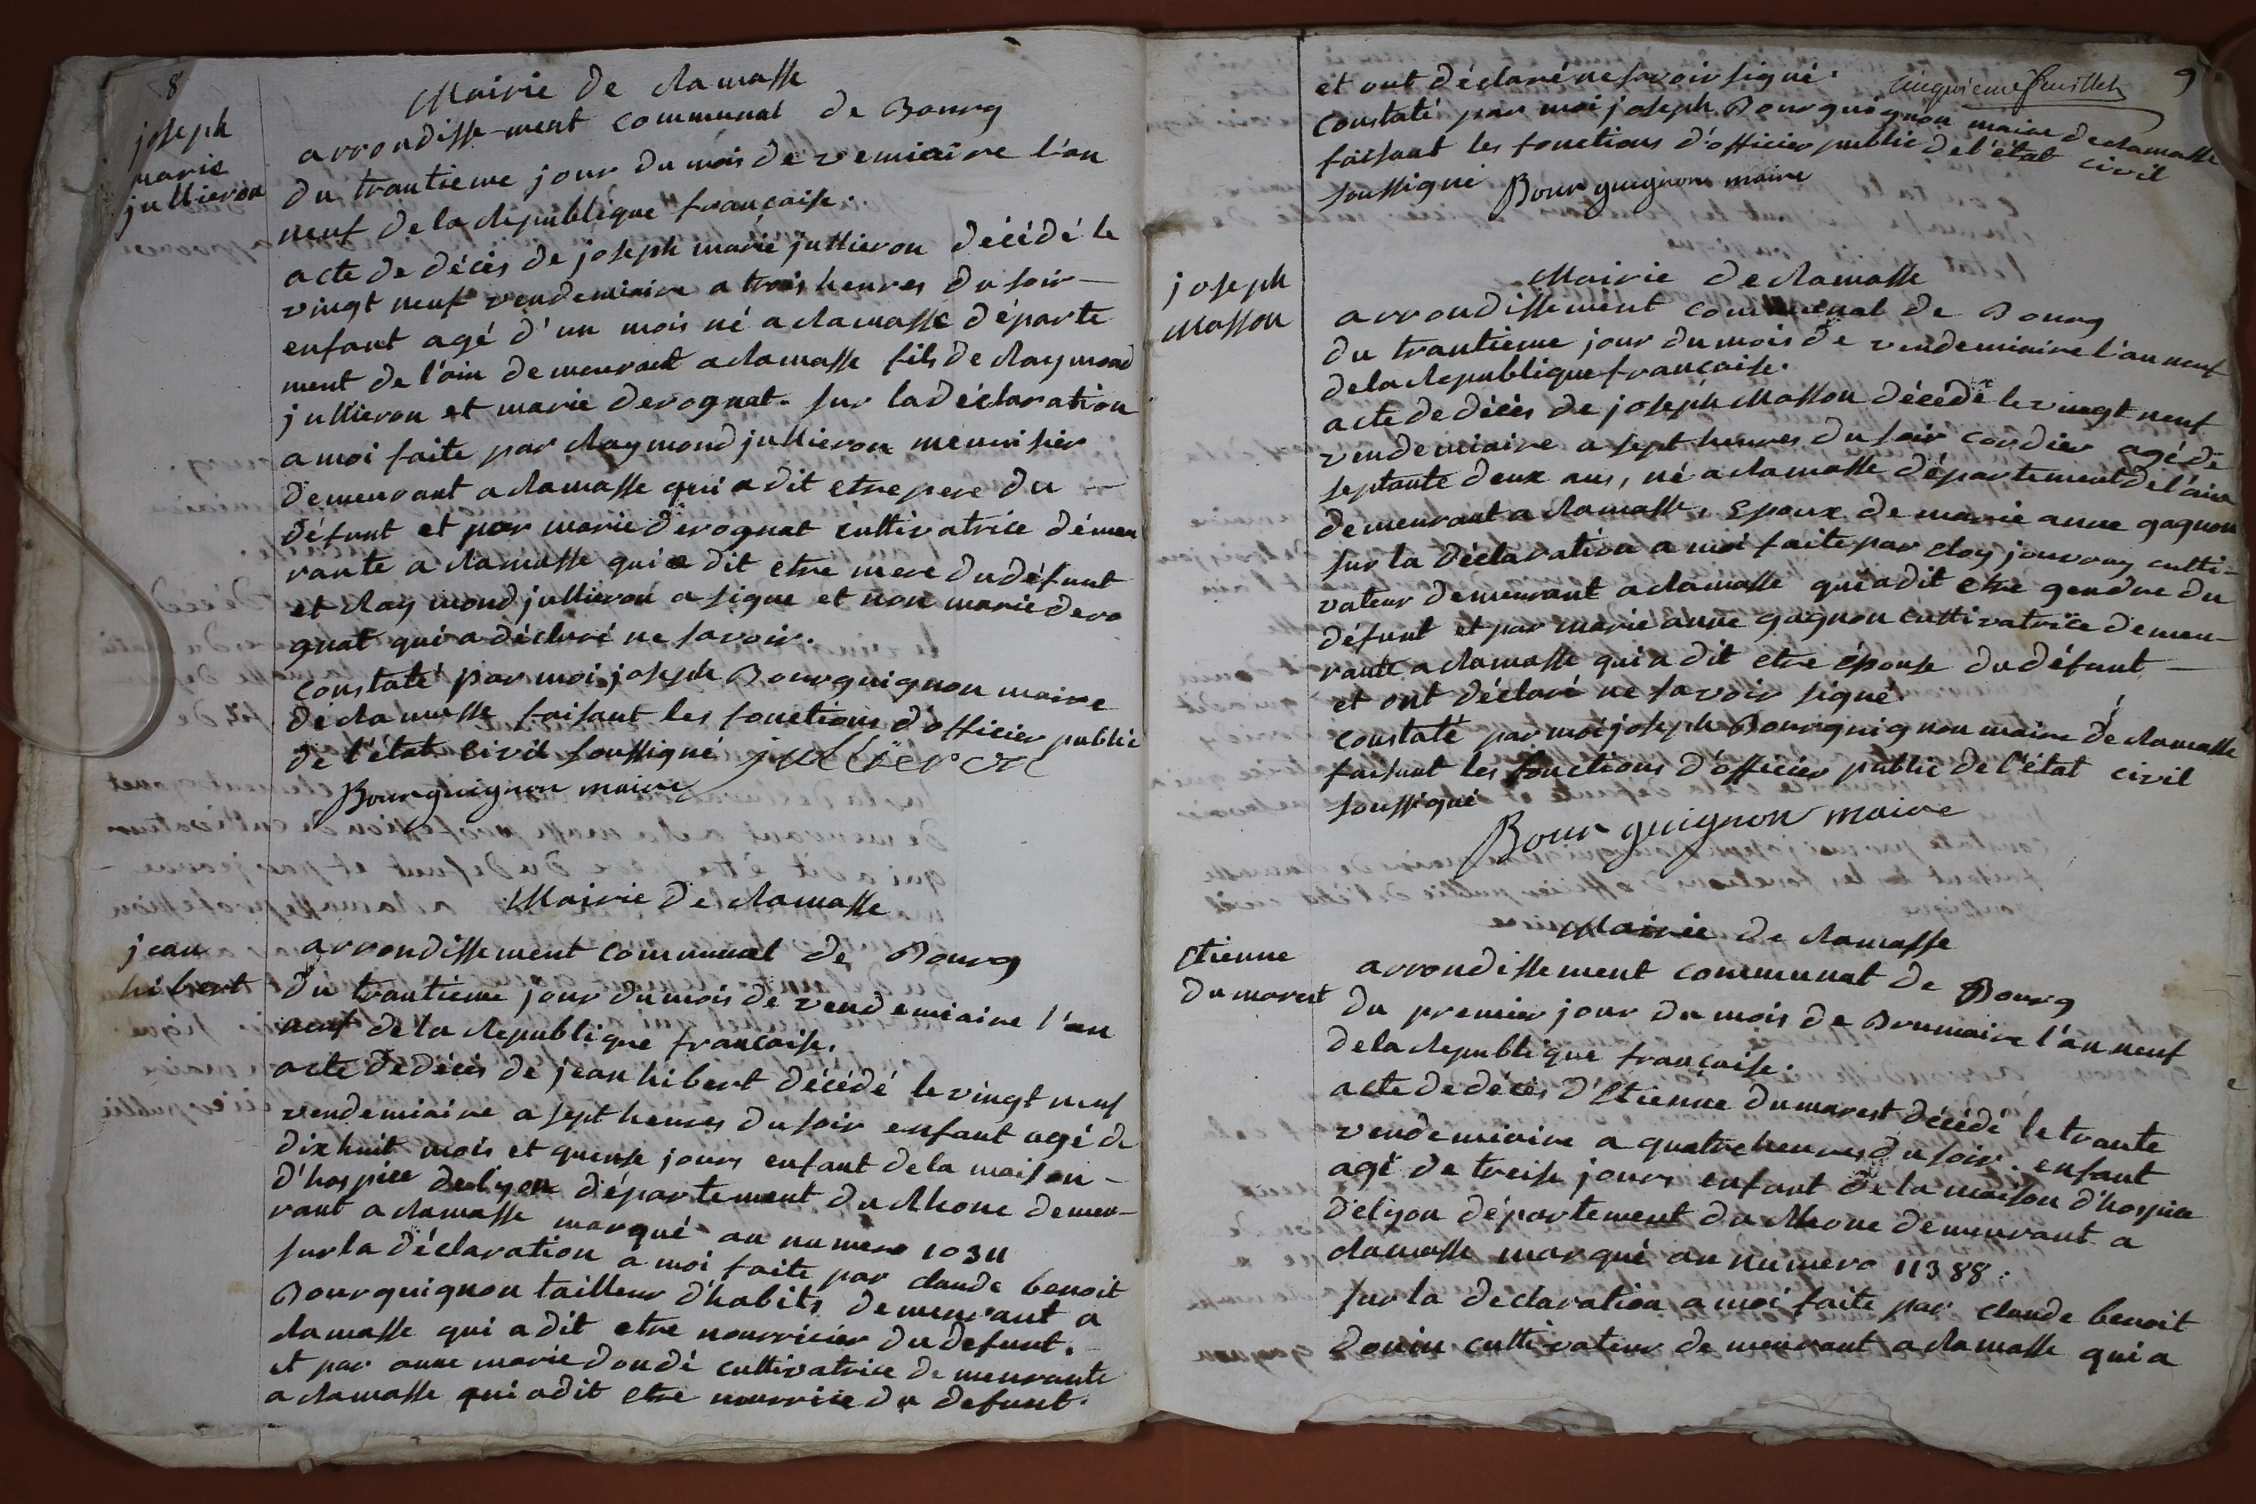 8
Mairie de Ramasse
joseph
marie
jullieron
arrondisse-ment communal de Bourg
du trantieme jour du mois de vemiaire l'an
neuf de la Republique française.
acte de décès de joseph marie jullieron décédé le
vingt neuf vendemiaire a trois heures du soir —
enfant agé d'un mois né a Ramasse départe
ment de l'ain demeurant a Ramasse fils de Raymond
jullieron et marie derognat. sur la déclaration
a moi faite par Raymond jullieron menuisier
demeurant a Ramasse qui a dit etre pere du —
défunt et par marie derognat cultivatrice démeu
rante a Ramasse qui a dit etre mere du défunt
et Raymond jullieron a signe et non marie dero
gnat qui a déclaré ne savoir.
constaté par moi joseph Bourguignon maire
de Ramasse faisant les fonctions d'officier public
de l'état civil soussigné jullieron
Bourguignon maire
Mairie de Ramasse
jean
hibert
arrondissement communal de Bourg
du trantieme jour du mois de vendemiaire l'an
neuf de la Republique française.
acte de décès de jean hibert décédé le vingt neuf
vendemiaire a sept heures du soir enfant agé de
dix huit mois et quense jours enfant de la maison —
d'hospice de lyon département du Rhone demeu-
rant a Ramasse marqué au numero 1031
sur la déclaration a moi faite par claude benoit
Bourguignon tailleur d'habits demeurant a
Ramasse qui a dit etre nourricier du defunt.
et par anne marie doudé cultivatrice demeurante
a Ramasse qui a dit etre nourrice du defunt.
cinquieme feuillet
9
et ont déclaré ne savoir signé.
constaté par moi joseph Bourguignon maire de Ramasse
faisant les fonctions d'officier public de l'état civil
soussigné Bourguignon maire
Mairie de Ramasse
joseph
Masson
arrondissement communal de Bourg
du trantieme jour du mois de vendemiaire l'an neuf
de la Republique française.
acte de décès de joseph Masson décédé le vingt neuf
vendemiaire a sept heures du soir cordier agé de
septante deux ans, né a Ramasse département de l'ain
demeurant a Ramasse, Epoux de marie anne gagnon
sur la déclaration a moi faite par cloy jouvray culti-
vateur demeurant a Ramasse qui a dit etre gendre du
défunt et par marie anne gagnon cultivatrice demeu-
rante a Ramasse qui a dit etre épouse du défunt —
et ont déclaré ne savoir signé
constaté par moi joseph Bourguignon maire de Ramasse
faisant les fonctions d'officier public de l'état civil
soussigné
Bourguignon maire
Mairie de Ramasse
Etienne
dumarest
arrondissement communat de Bourg
du premier jour du mois de Brumaire l'an neuf
de la Republique française.
acte de décès d'Etienne dumarest décédé le trante
vendemiaire a quatre heures du soir. enfant
agé de treise jours enfant de la maison d'hospice
de lyon département du Rhone demeurant a
Ramasse marqué au numero 11388:
sur la declaration a moi faite par claude benoit
douin cultivateur demeurant a Ramasse qui a